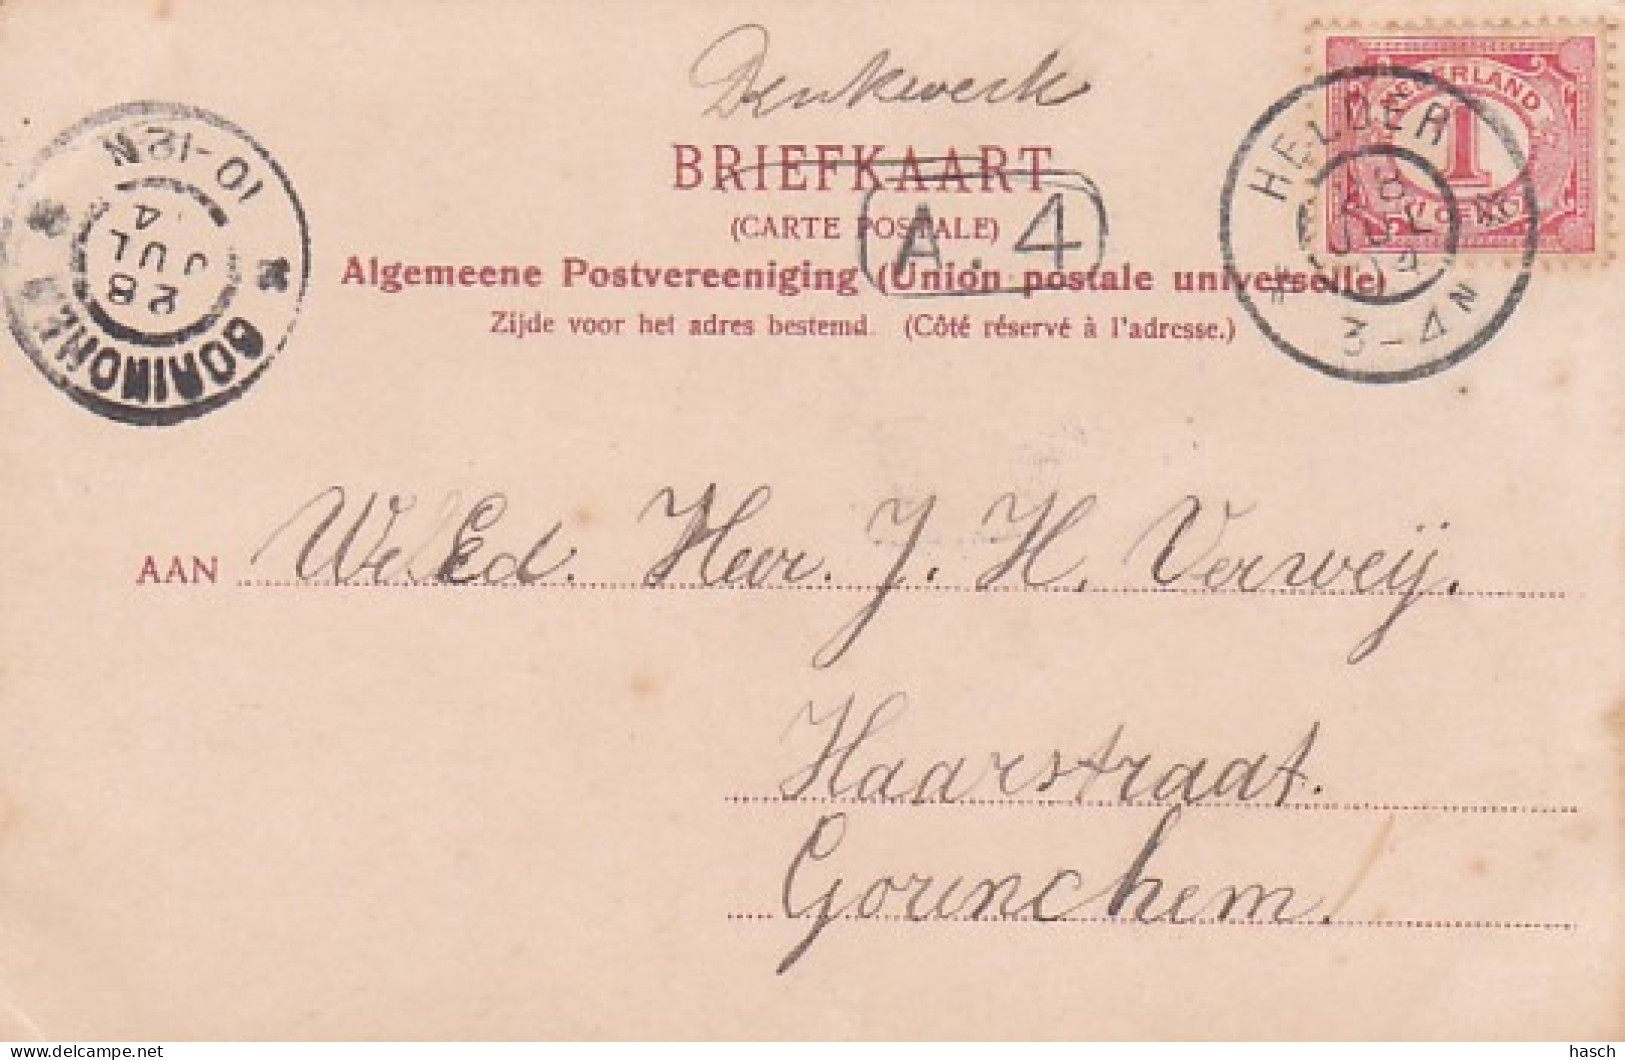 Denkwerk
BRIEFKAART
(CARTE POSTALE)
A.4
Algemeene Postvereeniging (Union postale universelle)
Zijde voor het adres bestemd. (Côté réservé à l'adresse.)
10-12N
4
JUL
28
GORINCHEM
NEDERLAND
1
CENT
HELDER
JUL
04
3-4N
AAN WelEd. Heer. J. H. Verweij.
Haarstraat.
Gorinchem.
hasch